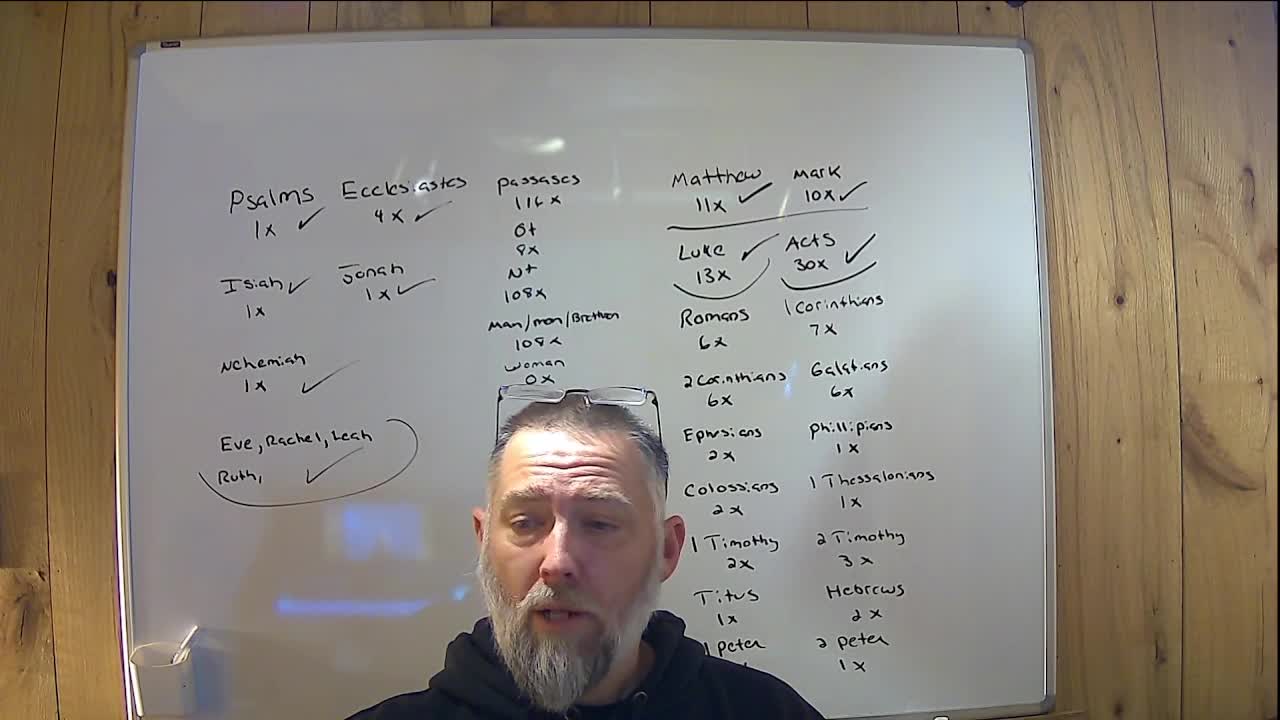 Psalms Ecclesiastes
1x 4x
Isiah Jonah
1x 1x
Nehemiah
1x
Eve, Rachel, Leah
Ruth,
passages
116x
Ot
8x
Nt
108x
Man/men/Brethren
108x
woman
0x
Matthew Mark
11x 10x
Luke Acts
13x 30x
Romans 1 Corinthians
6x 7x
2 Corinthians Galatians
6x 6x
Ephesians Phillipians
2x 1x
Colossians 1 Thessalonians
2x 1x
1 Timothy 2 Timothy
2x 3x
Titus Hebrews
1x 2x
1 Peter 2 Peter
1x